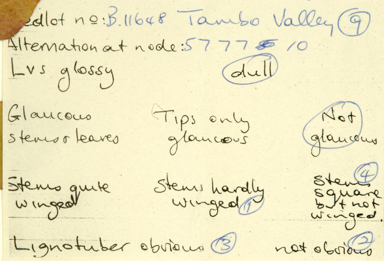 edlot no: B.11648 Tambo Valley 9
Alternation at node: 5 7 7 7 10
Lvs glossy dull
Glaucous Tips only Not
stems & leaves glaucous glaucous
Stems quite Stems hardly Stems 4
winged winged 1 square
but not
winged.
Lignotuber obvious 3 not obvious 2